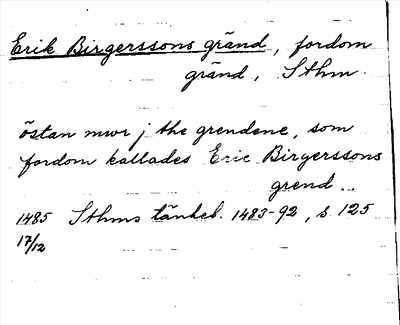 Erik Birgerssons gränd, fordom
gränd, Sthm.
östan mwr j the grendene, som
fordom kallades Eric Birgerssons
grend ...
1485 Sthms tänkeb. 1483-92, s. 125
17/12